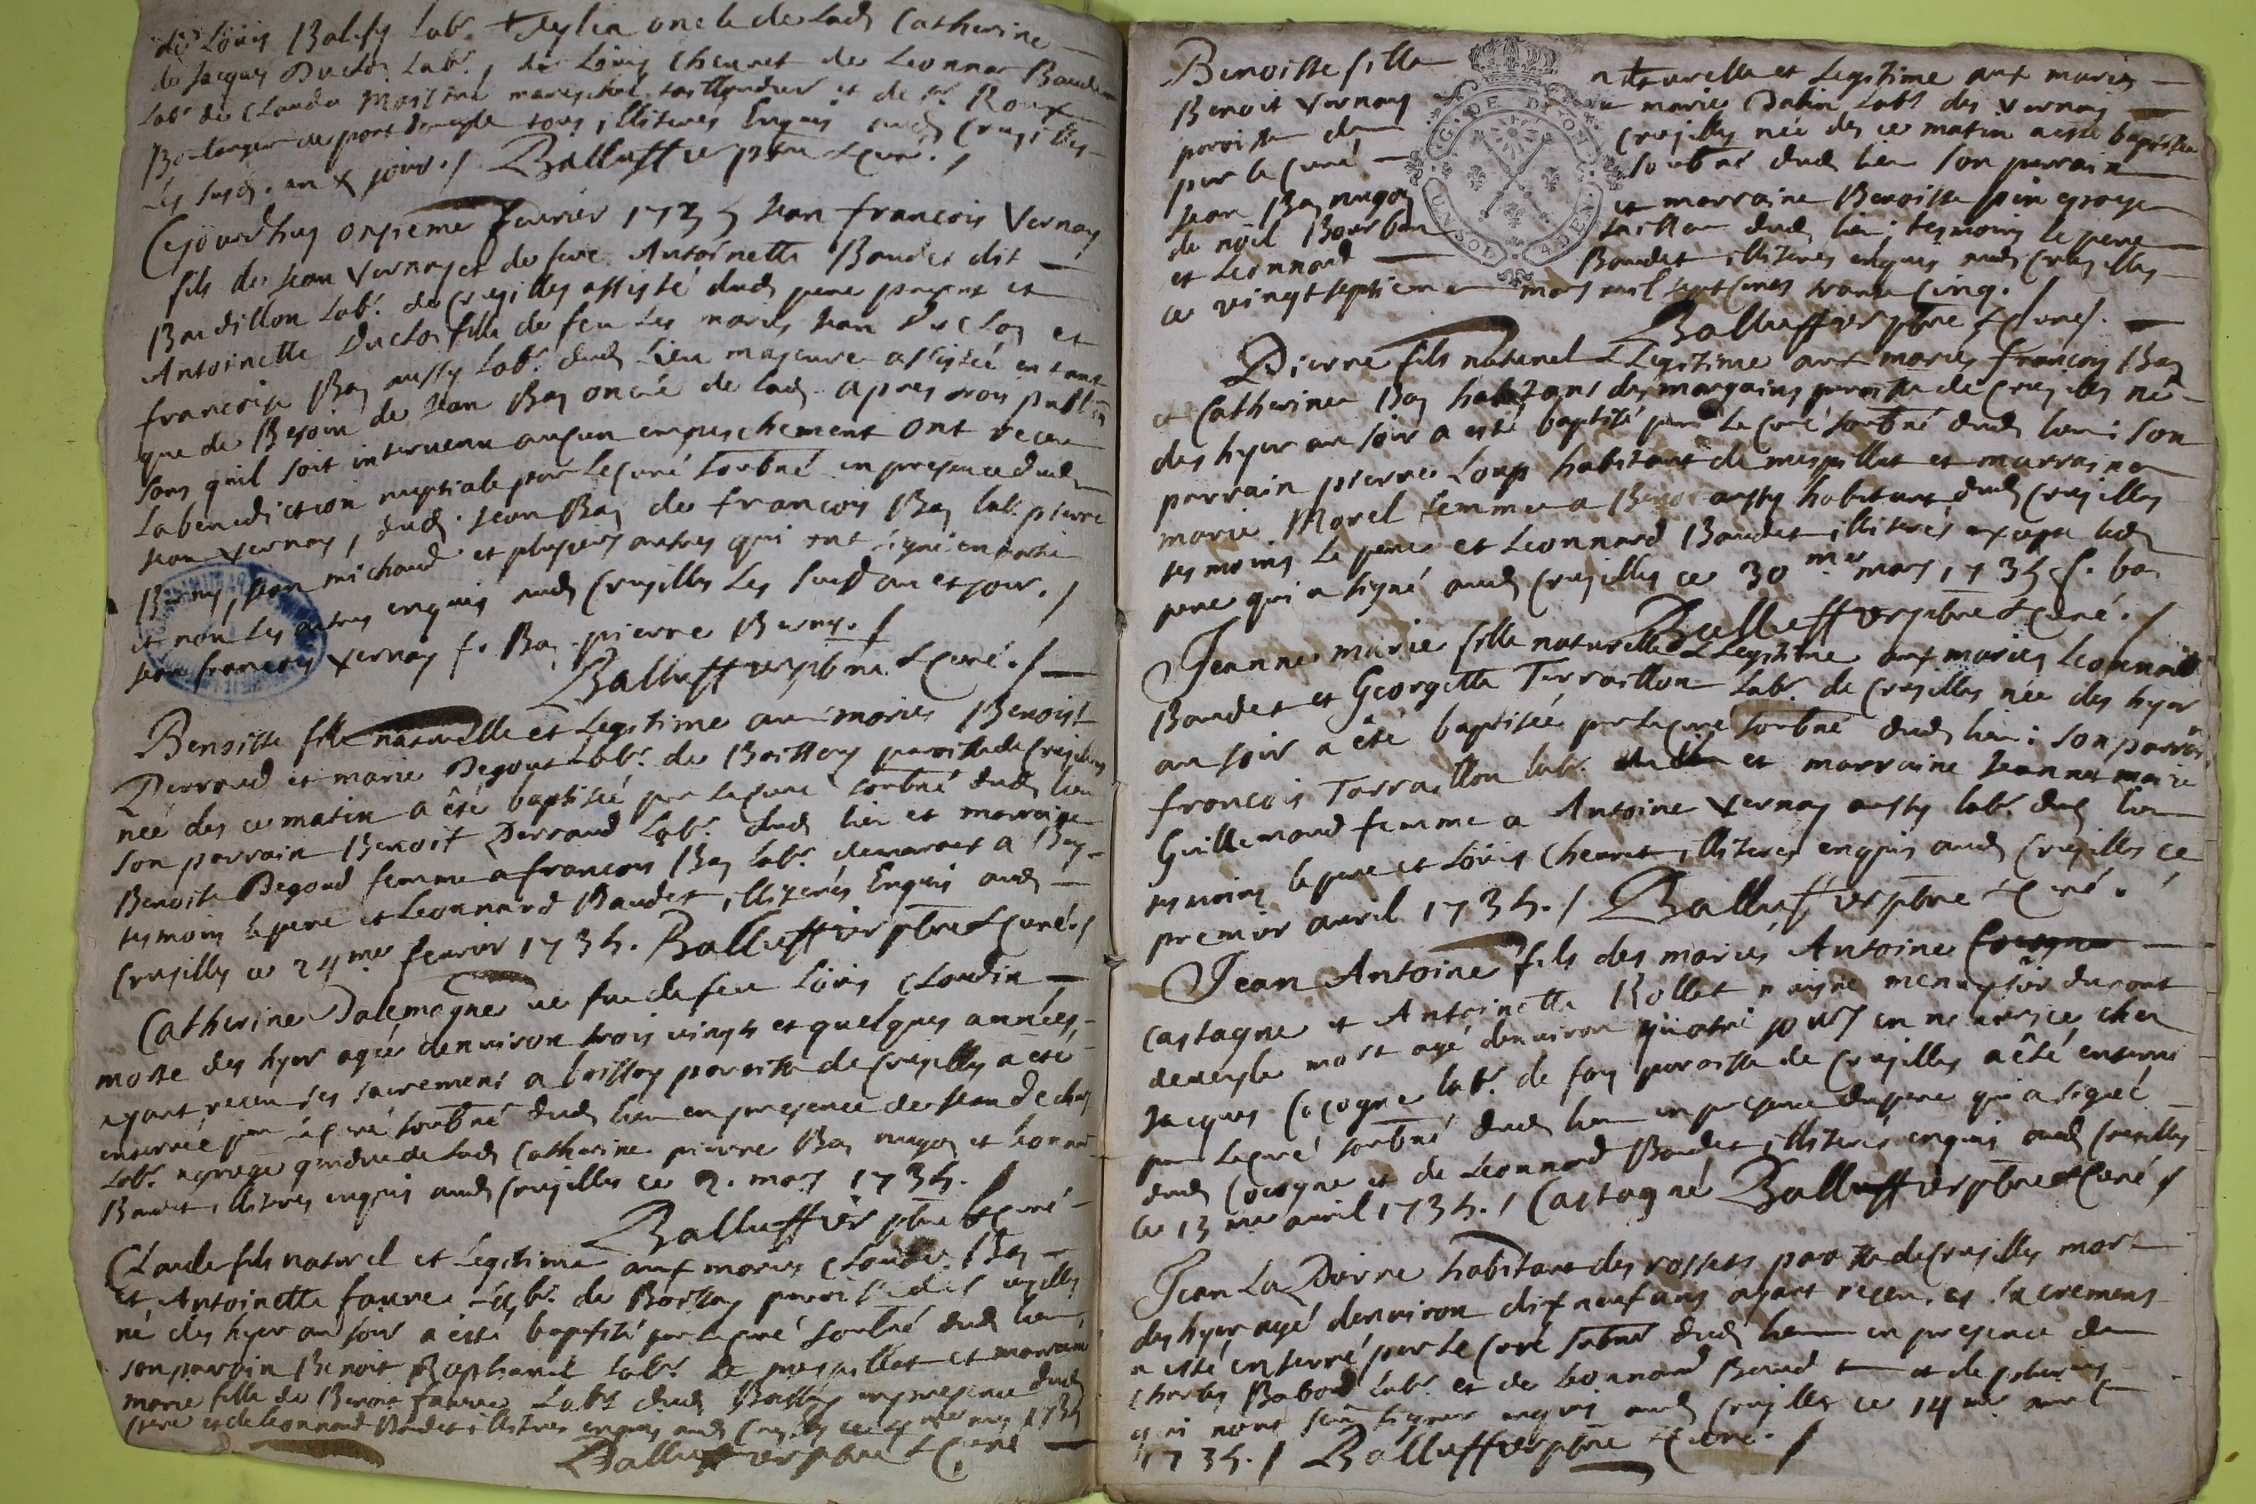 de Loüis Balufy lab. oncle de lad Catherine
de Jacques Duclos lab., de Loüis Chevret de Leonnar Baudet
lab. de Claude mareschal taillandier et de Roux
Boulanger de pont tous illiterés Enquis aud Crusilles
les susd. an & jour./ Balluffier pbre & curé./
Cejourdhuy onsieme fevrier 1735 Jean francois Vernay
fils de Jean Vernay et de feue Antoinette Baudet dit
Baudillon lab. de Crusilles assisté dud pere present et
Antoinette Duclos fille de feu les mariés Jean Duclos et
francoise Bay aussy lab. dud lieu majeure assistée entant
que de Besoin de Jean Bay oncle de lad. apres trois
sans quil soit intervenu aucun empeschement ont receu
La benediction nuptiale par le curé soubné en presence dud
Jean Vernay, dud. Jean Bay de francois Bay lab. pierre
Jean michaud et plusieurs autres qui ont signé
et non les autres enquis aud Crusilles les susd an et jour./
Jean francois Vernay f. Bay pierre
Balluffier pbre & curé./
Benoiste fille naturelle et legitime aux mariés Benoist
Perraud et marie Degout lab. de Boissey paroisse de Crusilles
née des ce matin a êté baptisée par le curé soubné dud lieu
son parrain Benoit Perraud Lab. dud lieu et marraine
Benoiste Degoud femme a francois Bay lab. demeurant a
tesmoins le pere et Leonnard Baudet illiterés Enquis aud
Crusilles ce 24me fevrier 1735. Balluffier pbre & curé./
Catherine Dalemagne ve fue de feu Loüis Claudin
morte des hyer agée denviron trois vingts et quelques années,
ayant receu ses sacremens a boissey paroisse de Crusilles a eté
enterrée par le curé soubné dud lieu en presence de Jean
lab. gendre de lad Catherine pierre Bay et Leonnard
Baudet illiterés enquis aud Crusilles ce 2. mars 1735./
Balluffier pbre & curé
Claude fils naturel et legitime aux mariés Claude Bay
et Antoinette faure Lab. de Boissey paroisse de Crusilles
né des hyer au soir a esté baptisé par le curé soubné dud lieu,
son parrain Benoit lab. de mespillat et marraine
marie fille de faure Lab. dud Boissey en presence dud
pere et de Leonnard Baudet illiterés enquis aud Crusilles ce mars 1735
Balluffier pbre & curé
Benoiste fille naturelle et Legitime aux mariés
Benoit Vernay et marie Dabin lab. des Vernay
paroisse de Crusilles née des ce matin a esté baptisée
par le curé soubné dud lieu son parrain
Jean Bay et marraine Benoiste
de nöel Bourbon dud lieu; tesmoins le pere
et Leonnard Baudet illiterés enquis aud Crusilles
ce vingt septieme mars mil sept cent trante cinq./
G. DE DIJON
UN SOL 4 DEN
Balluffier pbre & curé.
Pierre fils naturel & Legitime aux mariés francois Bay
et Catherine Bay habitans des margains paroisse de Crusilles né
des hyer au soir a esté baptisé par le curé soubné dud lieu; son
parrain pierre Loup habitant de mespillat et marraine
marie Morel femme a aussy habitant dud Crusilles
tesmoins le pere et Leonnard Baudet illiterés excepté led
pere qui a signé aud Crusilles ce 30me mars 1735 f. bay
Balluffier pbre & curé./
Jeanne marie fille naturelle & Legitime aux mariés Leonnard
Baudet et Georgette Terraillon lab. de Crusilles née des hyer
au soir a êté baptisée par le curé soubné dud lieu; son parrain
francois Tarraillon lab. et marraine Jeanne marie
Guillemaud femme a Antoine Vernay aussy lab. dud lieu
tesmoins le pere et Loüis Chevret illiterés enquis aud Crusilles ce
premier avril 1735./ Balluffier pbre & curé./
Jean Antoine fils des mariés Antoine
Castagne et Antoinette Rollet menuysier du pont
devesle mort agé denviron quatre jours en nourrice chez
Jacques Cocogne lab. de foy paroisse de Crusilles a êté enterré
par le curé soubné dud lieu en presence du pere qui a signé
dud Cocogne et de Leonnard Baudet illiterés enquis aud Crusilles
ce 13me avril 1735./ Castagne Balluffier pbre & curé/
Jean La Pierre habitant des rossets paroisse de Crusilles mort
des hyer agé denviron dix neuf ans ayant receu ses sacremens
a esté enterré par le curé soubné dud lieu en presence de
Charles Babad lab. et de Leonnard Baudet et de plusieurs
qui nont sceu signer enquis aud Crusilles ce 14me avril
1735./ Balluffier pbre & curé./